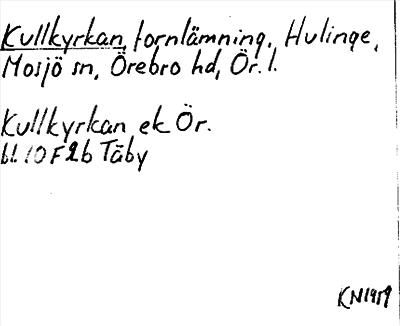 Kullkyrkan, fornlämning, Hulinge,
Mosjö sn, Örebro hd, Ör. l.
Kullkyrkan ek Ör.
bl. 10 F 2b Täby